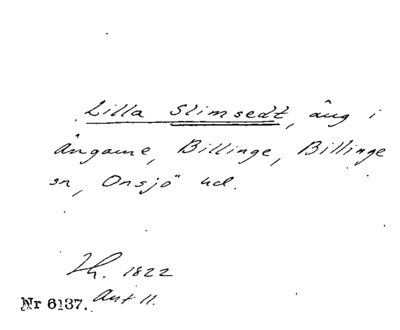 Lilla Slimsedt, äng i
Ångarne, Billinge, Billinge
sn, Onsjö hd.
Lh. 1822
Akt 11.
Nr 6137.